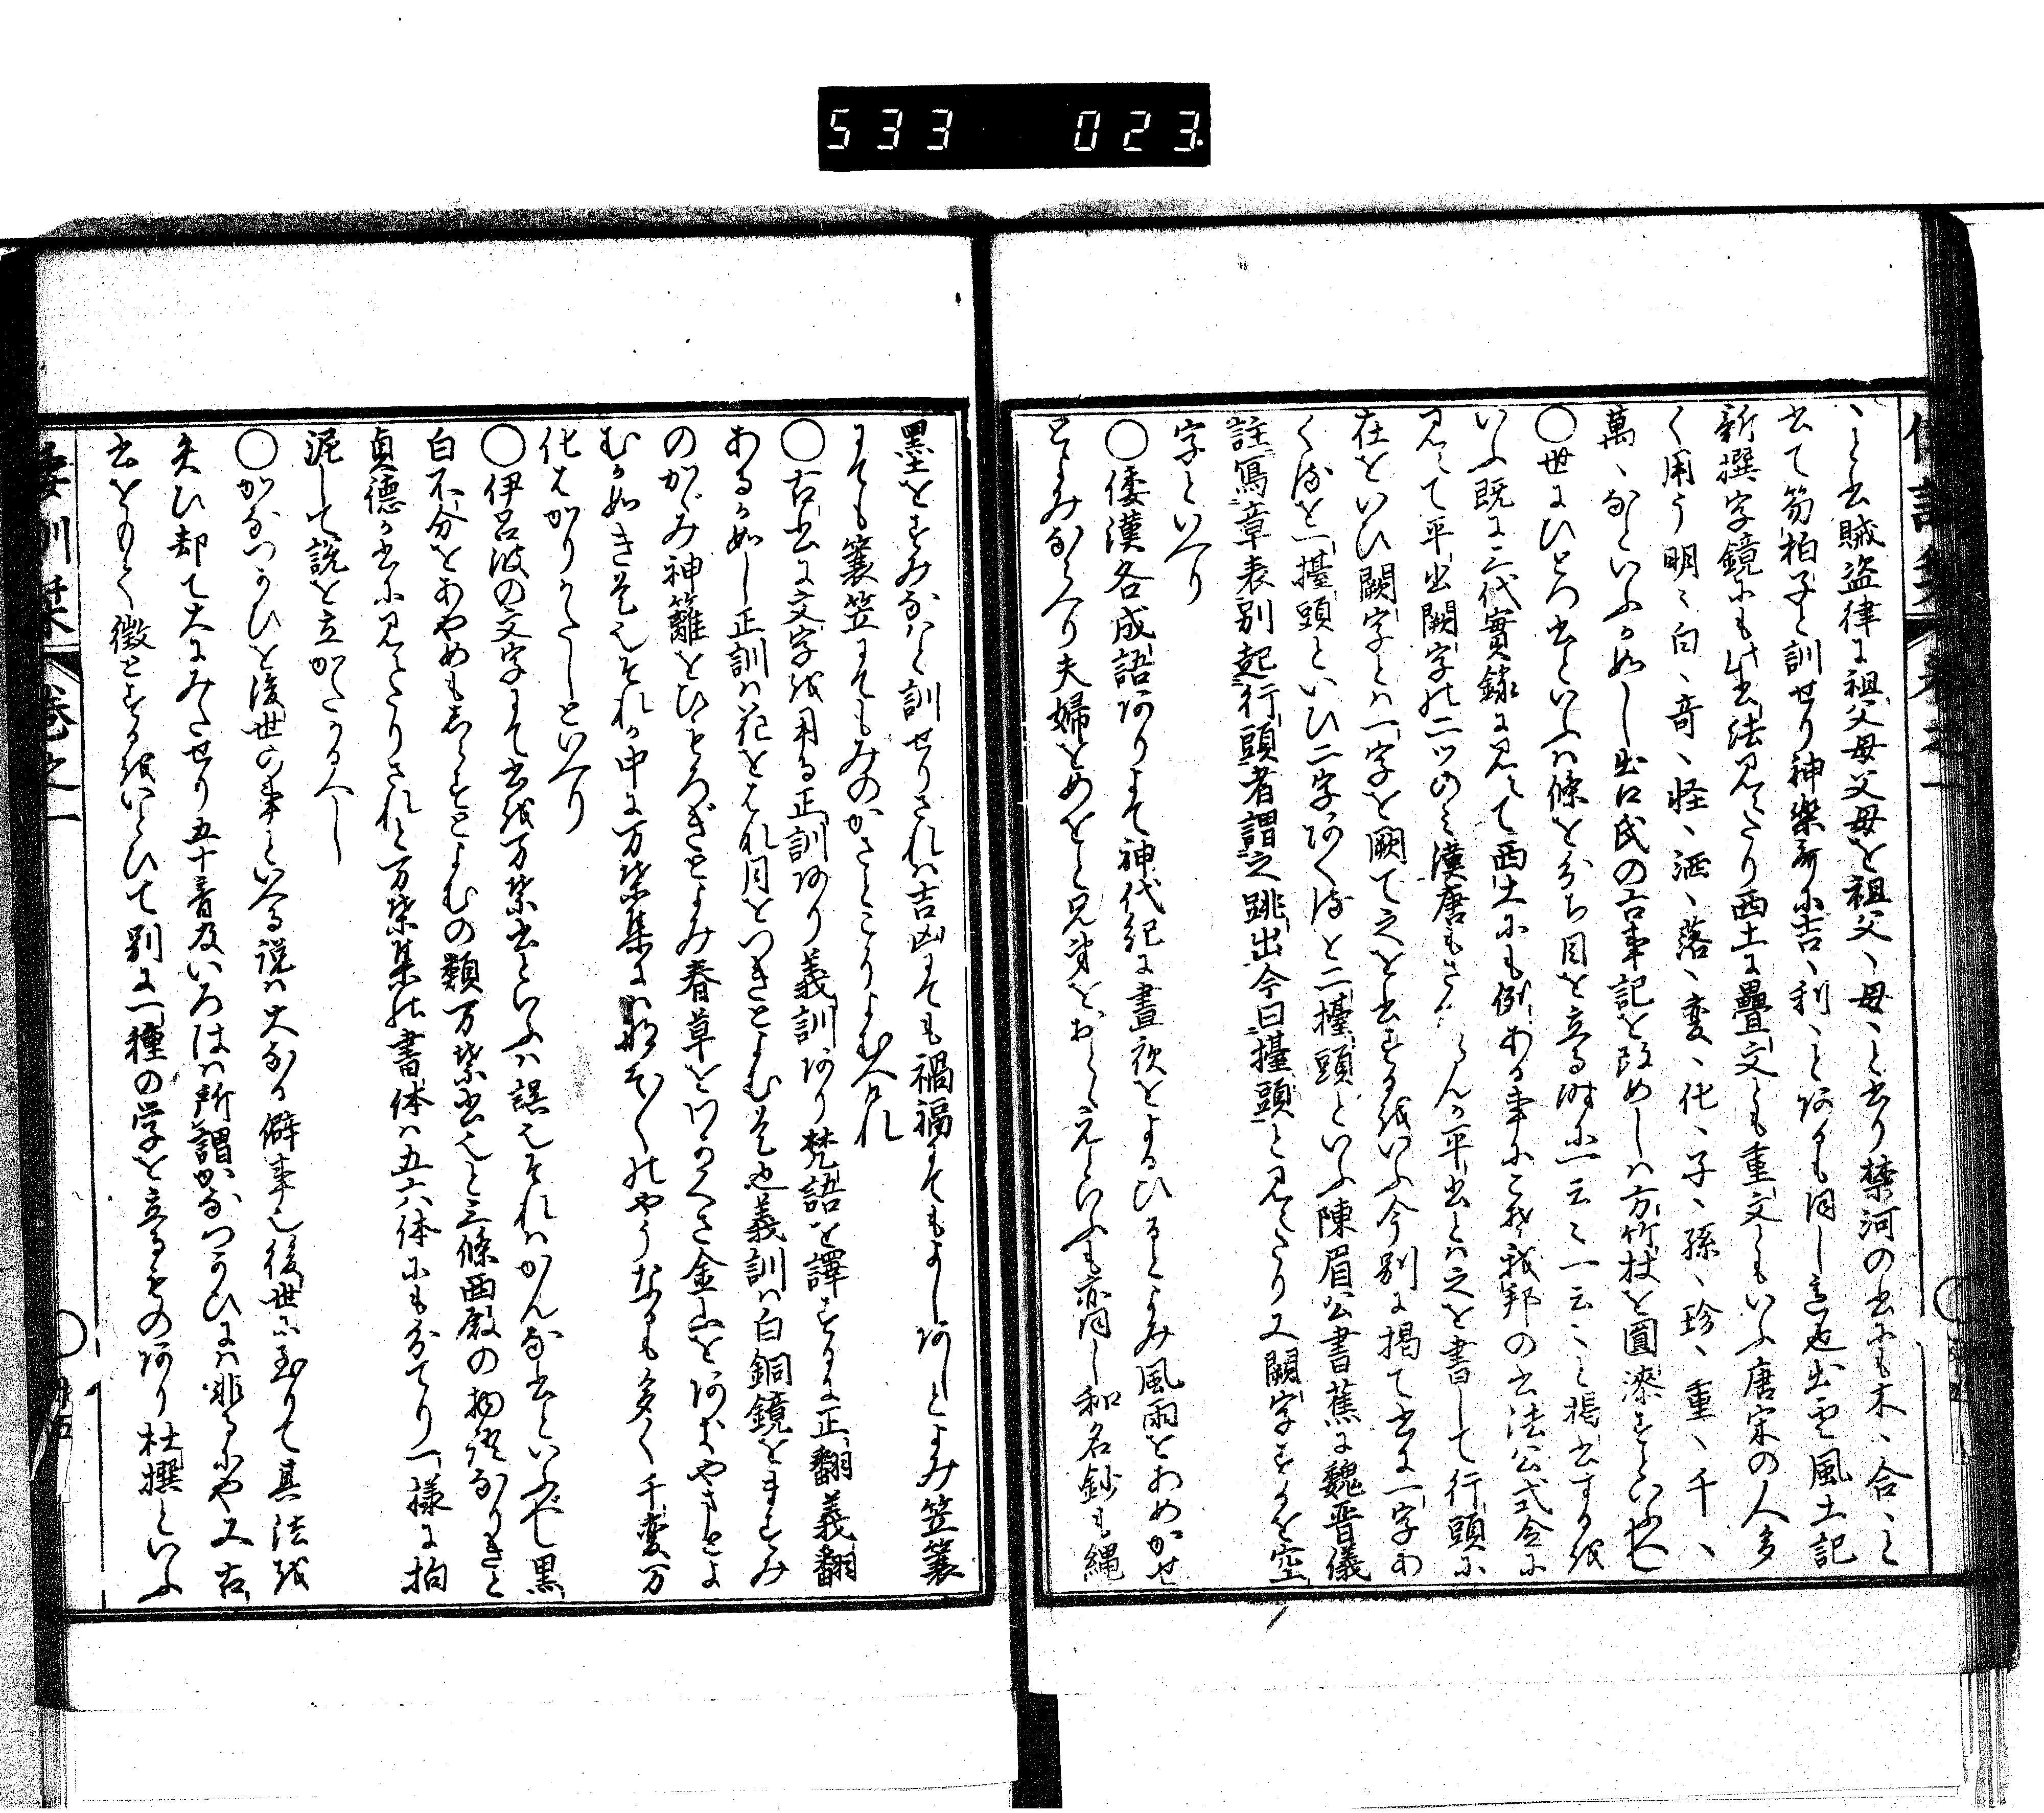 533 023
ヽと書賊盗律に祖父母父母を祖父ヽ母ヽと書り禁河の書にも木ヽ合ヽと
書て笏拍子と訓せり神楽哥に吉ヽ利ヽとあるも同し意也出雲風土記
新撰字鏡にも此書法見えたり西土に疊文とも重文ともいふ唐宋の人多
く用う明ミ白ヽ奇ヽ怪ヽ洒ヽ落ヽ変ヽ化ヽ子ヽ孫ヽ珍ヽ重ヽ千ヽ
萬ヽなといふか如し出口氏の古事記を改めしは方竹杖を圓漆すといふへし
〇世にひとつ書といふは條を分ち目を立る時に一云ミ一云ミと掲書するを
いふ既に三代實録に見えて西土にも例ある事にこそ我邦の書法公式令に
見えて平出闕字の二ツのミ漢唐もさ らんか平出とは之を書して行頭に
在をいひ闕字とは一字を闕て之を書するをいふ今別に掲て書に一字あ
くるを一擡頭といひ二字あくるを二擡頭といふ陳眉公書蕉に魏晋儀
註寫章表別起行頭者謂之跳出今曰擡頭と見えたり又闕字するを空
字といへり
〇倭漢各成語ありよて神代紀に晝夜をよるひるとよみ風雨をあめかせ
とよみならへり夫婦をめをと兄弟をおとゝえといふも亦同し和名鈔も縄
墨をすみなはと訓せりされは吉凶にても禍福にてもよしあしとよみ笠簑
にても簑笠にてもみのかさとこりよむへけれ
〇古書に文字を用る正訓あり義訓あり梵語を譯するに正翻義翻
あるか如し正訓は花をはれ月をつきとよむそ也義訓は白銅鏡をますみ
のかゞみ神籬をひもろぎとよみ春草をわかくさ金山をあおやまとよ
むか如きそれか中に万葉集には
化はかりかたしといへり
〇伊呂波の文字にて書を万葉書といふは誤也それはかんな書といふべし黒
白不分をあやめもしらすとよむの類万葉書也と三條西殿の物語なりきと
貞徳か書に見えたりされと万葉集の書体は五六体にも分てり一様に拘
泥して説を立かたかるへし
〇かなつかひを後世の事といへる説は大なる僻事也後世に至りて其法を
失ひ却て大にみたせり五十音及いろはは所謂かなつかひには非るにや又古
書をもて徴とするをいとひて別に一種の学を立るものあり杜撰といふ
倭訓栞 巻之一